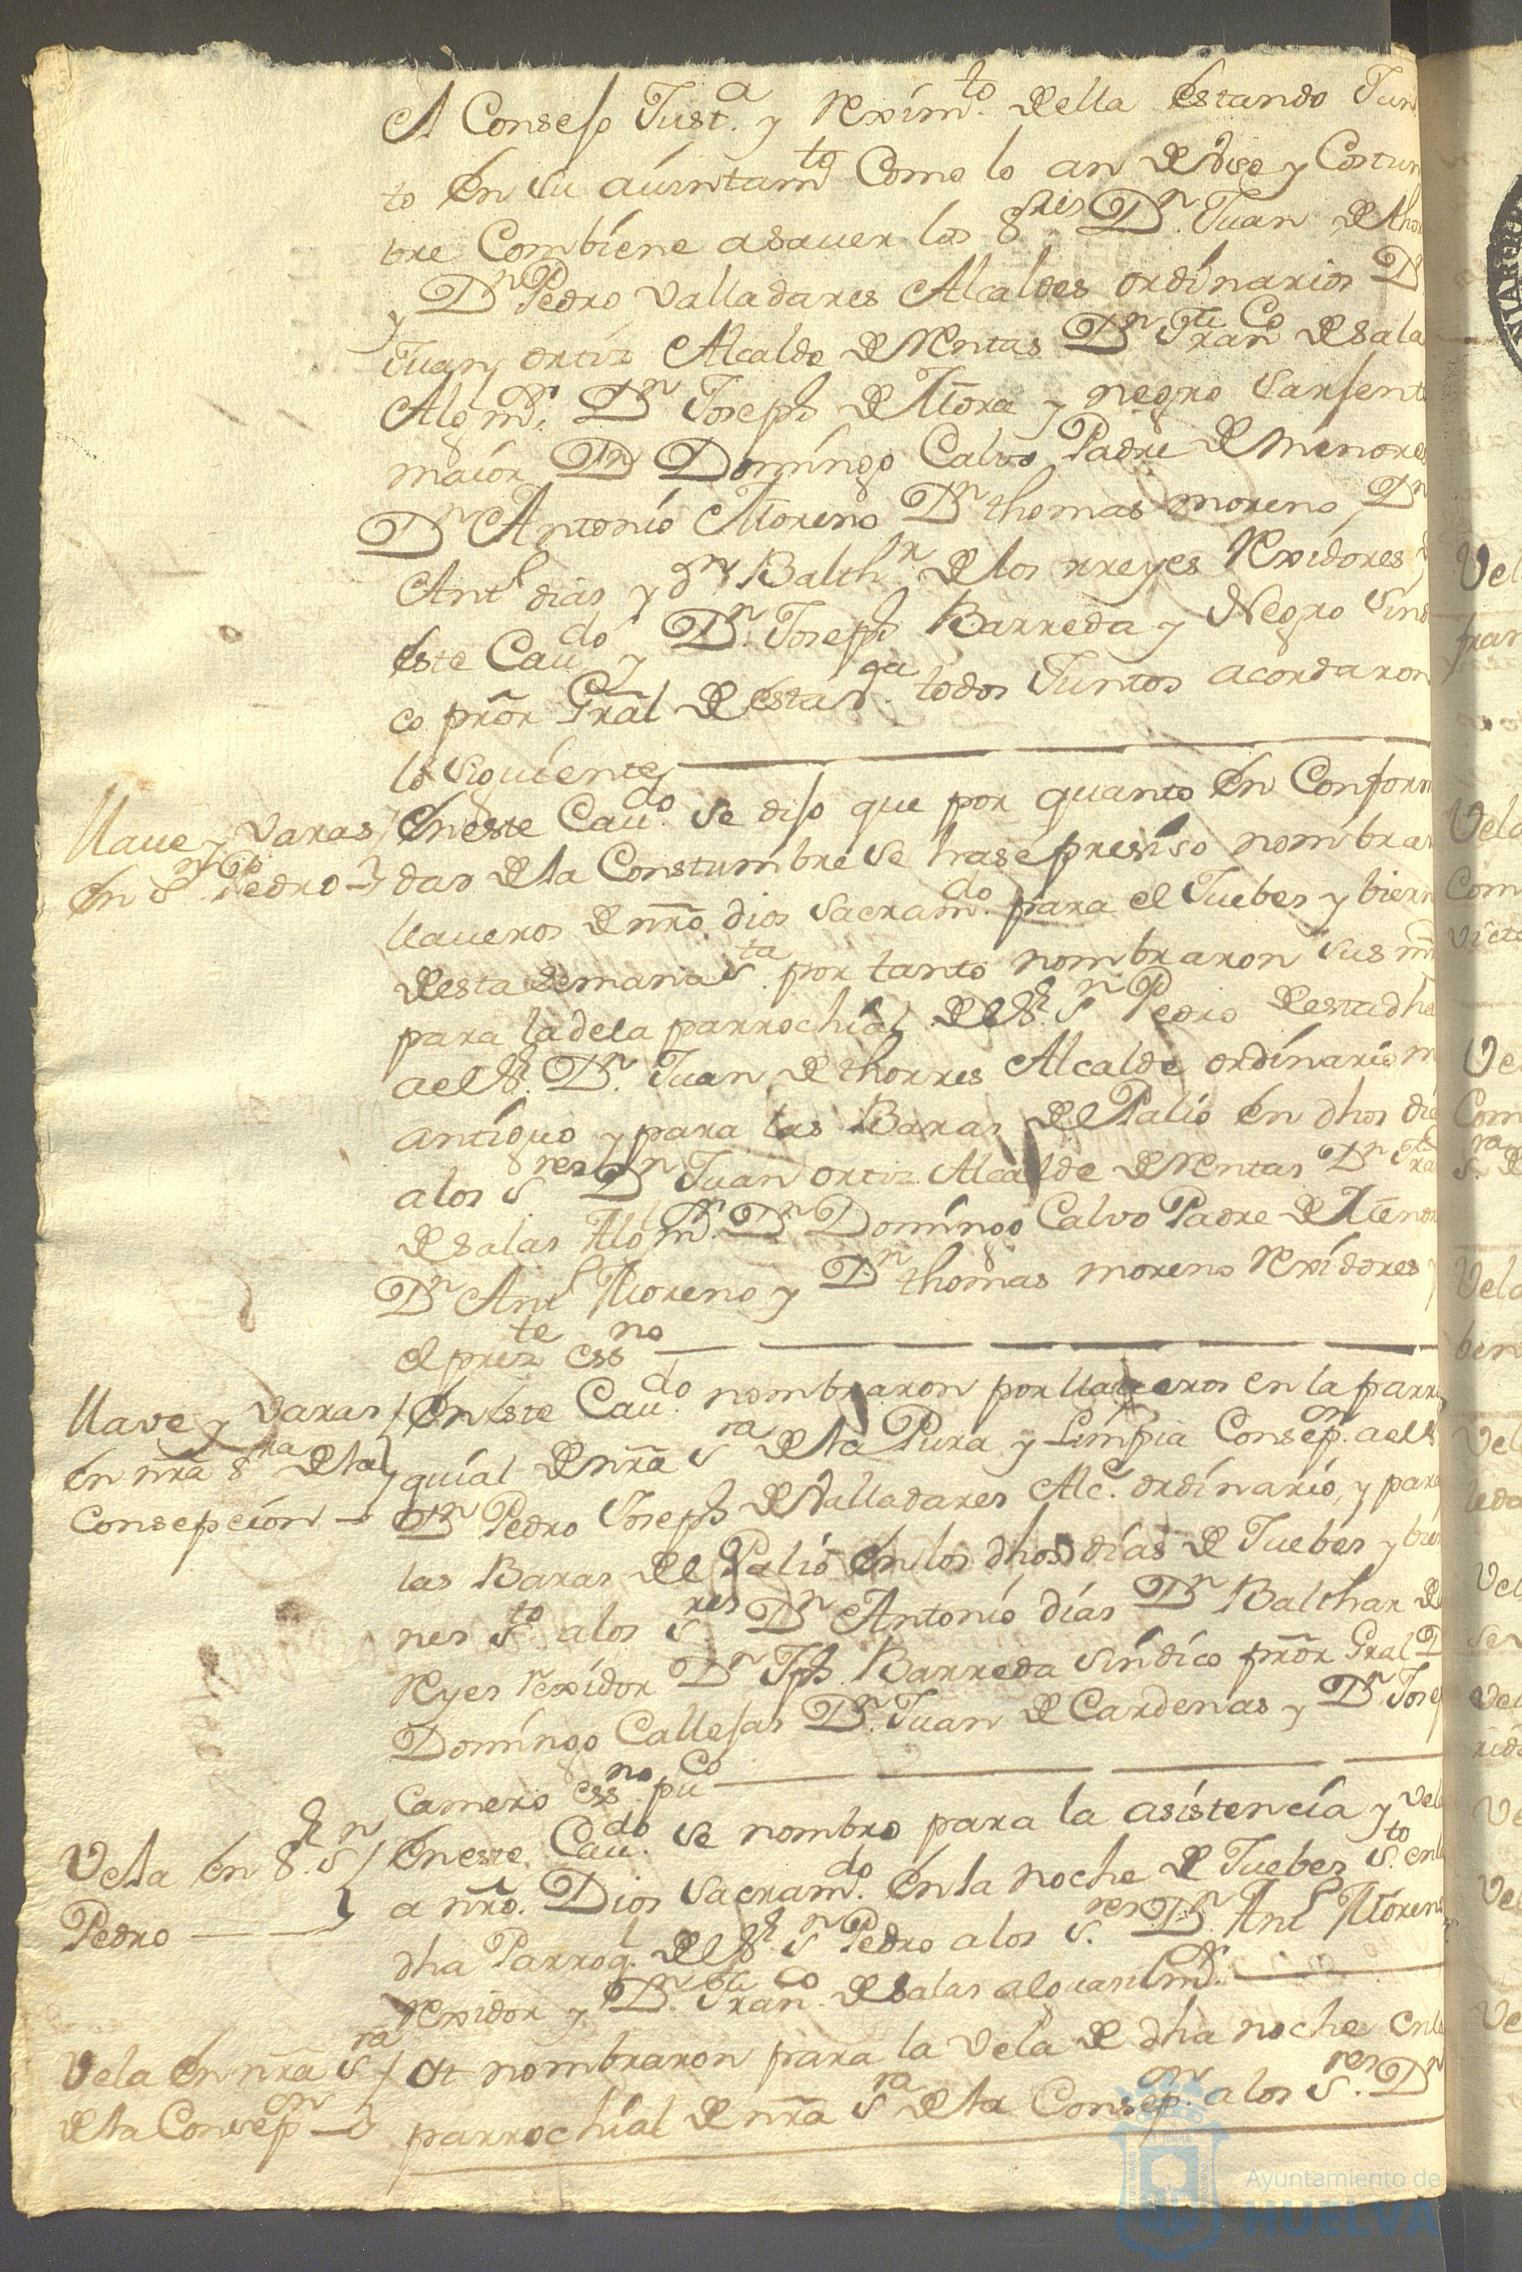 Al Consejo Just.a y Rexim.to della estando Jun
to en su auintam.to Como lo an de Uso y Costun
bre Combiene asauer los S.res D.n Juan de tho
y D.n Pedro Valladares Alcaldes ordinarios D
Juan ortiz Alcalde de Rentas D.n Fran.co de Sala
Alg m.r D.n Joseph de Mora y negro Sarjent
maior D.n Domingo Calvo Padre de menores
D.n Antonio Moreno D.n thomas moreno D.n
Ant.o dias y d.n Balth.r de los rreyes Rexidores
este Cau.do y D.n Joseph Barreda y Negro Sind
co pror Gral de esta V.a todos Juntos acordaron
lo siguiente
Llaue y varas
en S.r S.n Pedro
En este Cau.do se dijo que por quanto en Conform
dad de la Constumbre se hase presiso nombrar
llaueros de nro dios sacram.do para el Juebes y biern
de esta semana S.ta por tanto nombraron sus m
para la de la parrochial de el S.r S.n Pedro de esta dha
a el S.r D.n Juan de thorres Alcalde ordinario m
antiguo y para las Baras de el Palio en dhos dia
a los S.res D.n Juan ortiz Alcalde de Rentas D.n Fra
de Salas Alg m.r D.n Domingo Calvo Padre de Menor
D.n Ant.o Moreno y D.n thomas moreno Rexidores y
el prez.te ess.no
Llave y varas
en nra S.ra de la
Consepcion
En este Cau.do nombraron por llaueros en la parr
quial de nra S.ra de la Pura y Limpia Consep.on a el S
D.n Pedro Joseph de Valladares Alc.e ordinario, y para
las Baras de el Palio en los dhos dias de Juebes y bier
nes S.to a los S.res D.n Antonio dias D.n Balthar de
Reyes rexidor D.n Jph Barreda sindico pror Gral D
Domingo Callejas D.n Juan de Cardenas y D.n Josep
Camero ess.no pu.co
Vela en S.r S.n
Pedro
En este Cau.do se nombro para la asistencia y vela
a nro. Dios sacram.do en la noche de Juebes S.to en la
dha Parroq.l de el S.r S.n Pedro a los S.res D.n Ant.o Moreno
rexidor y D.n Fran.co de Salas alguasil m.r
Vela en nra S.ra
de la Consep.on
Ot nombraron para la vela de dha noche en la
parrochial de nra S.ra de la Consep.on a los S.res D.n
Ayuntamiento de
HUELVA